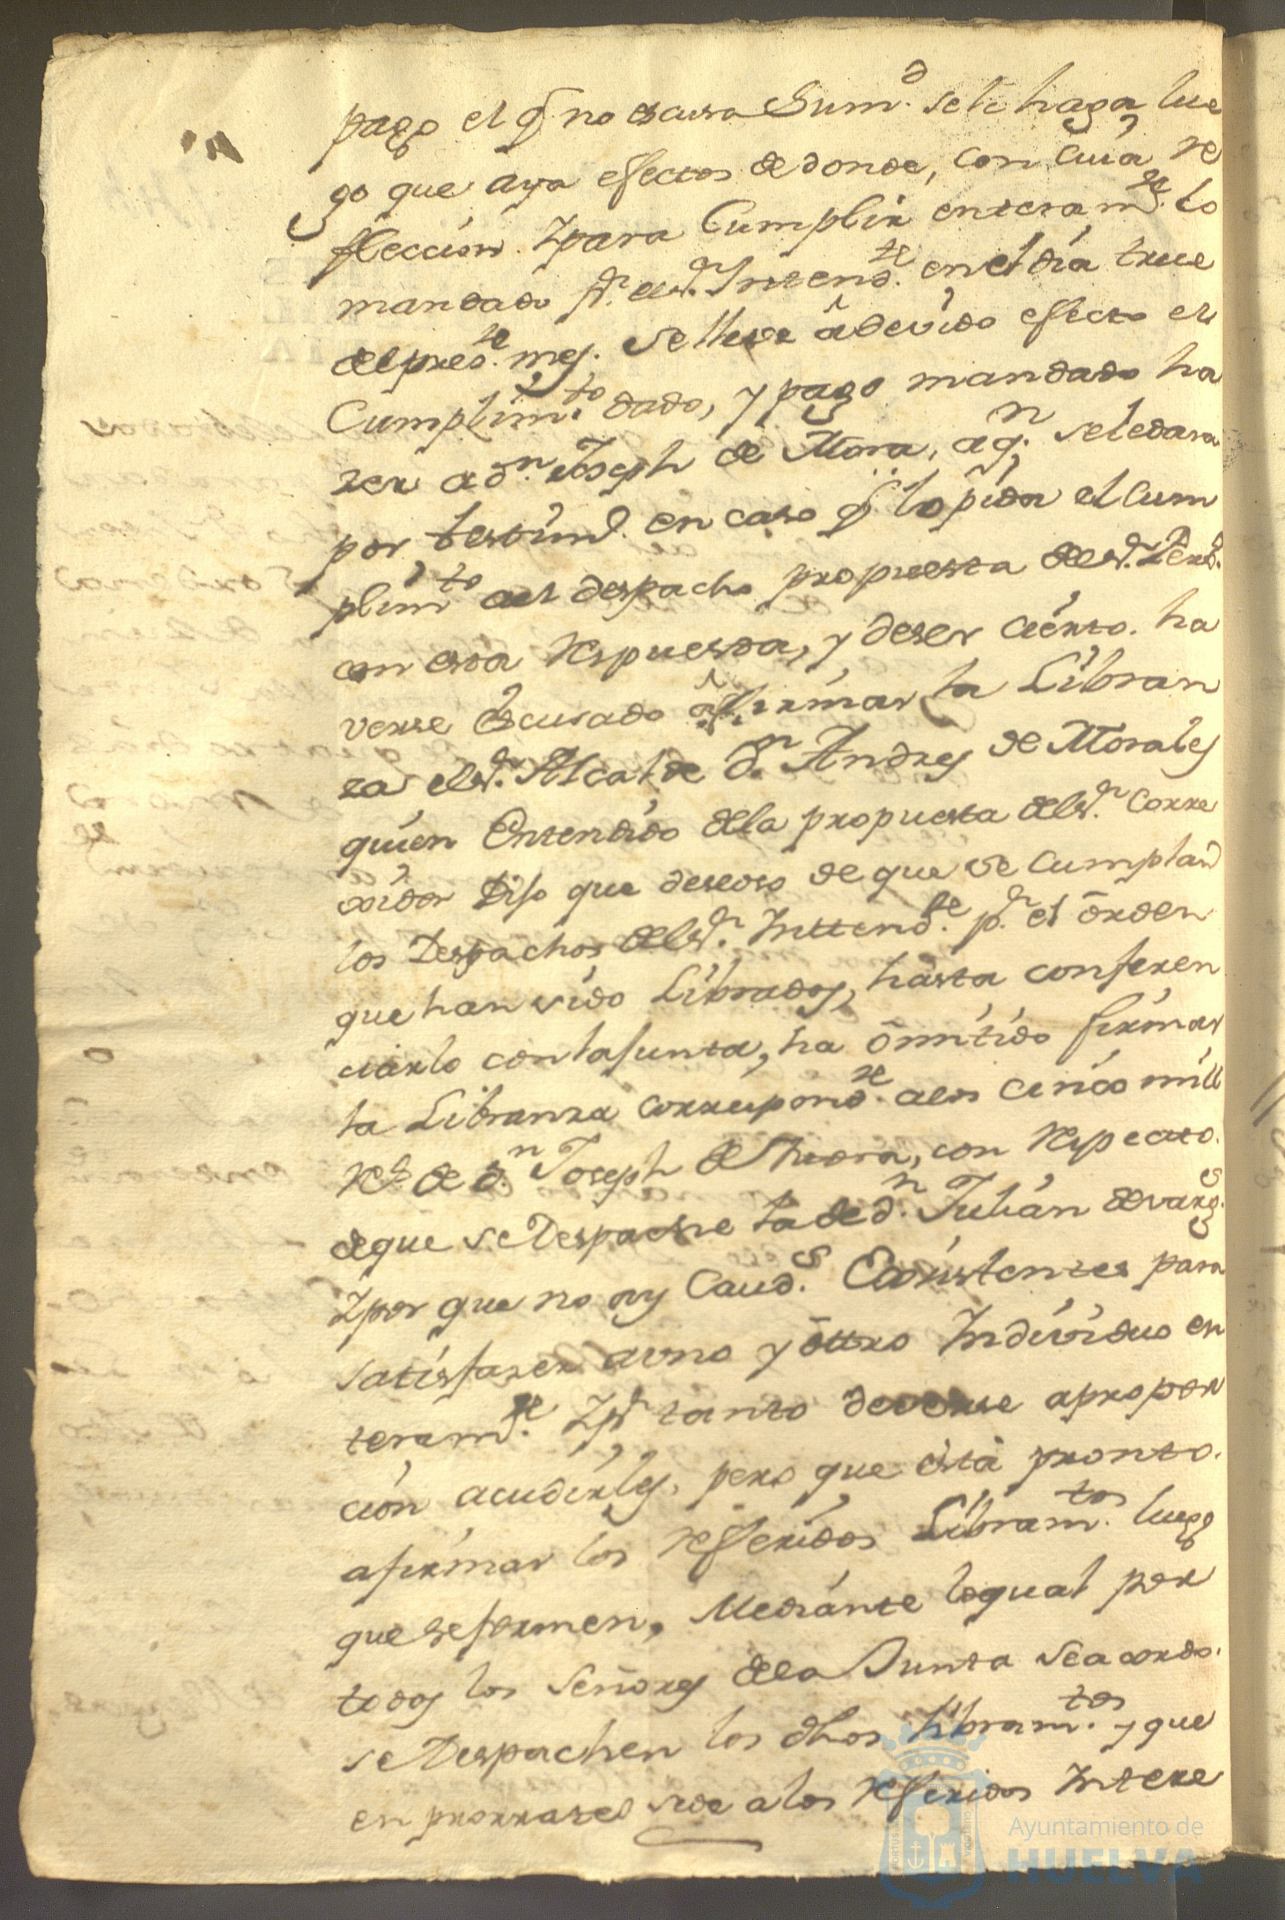 pago el q̃ no escusa Sum.d se le haga lue
go que aya efectos de donde, con cuia re
fleccion. Y para Cumplir enteram.te lo
mandado p.r el s.r Intend.te en el día trece
del pres.te mes. se lleve â devido efecto el
Cumplim.to dado, y pago mandado ha
zer a d.n Joseph de Mora, a q.n se le dara
por testim.o en caso q̃ lo pida el Cum
plim.to del despacho propuesta del s.r
con esta respuesta, y de ser cierto. ha
verse escusado â firmar la Libran
za el s.r Alcalde d.n Andres de Morales
quien Entendido de la propuesta del s.r Corre
xidor Dijo que deseoso de que se cumplan
los Despachos del s.r Inttend.te p.r el ôrden
que han sido Librados, hasta conferen
ciarlo con la Junta, ha ômitido firmar
la Libranza correspond.te a los cinco mill
R.s de d.n Joseph de Mora, con respecto.
de que se Despache la de d.n Julián de varg.s
Y por que no ay Caud.s Existentes para
satisfazer a uno y ôttro Individuo en
teram.te Y p.r tanto deverse a propor
ción acudirles, pero que está pronto.
a firmar los refferidos Libram.tos luego
que se formen, Mediánte lo qual por
todos los Señores de la Junta se acordo.
se Despachen los dhos libram.tos y que
en prorrateo se de a los refferidos Intere
Ayuntamiento de
HUELVA